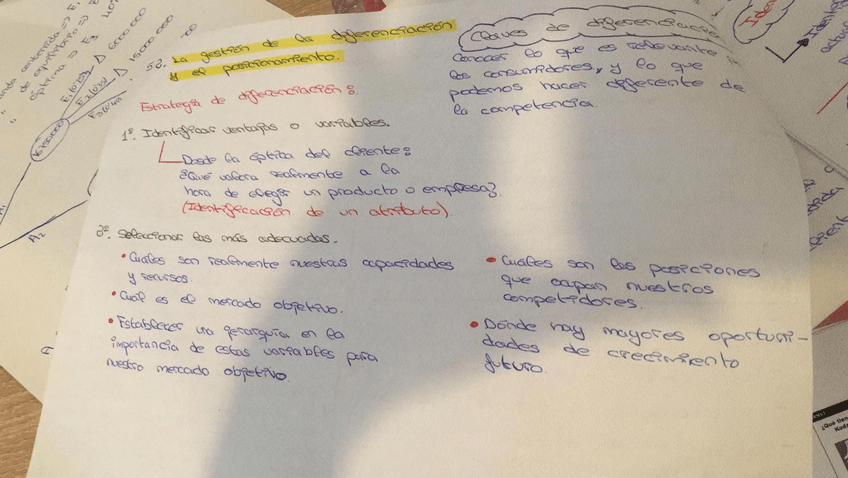 5.2. La gestión de la diferenciación
y el posicionamiento.
Estrategia de diferenciación:
1º. Identificar ventajas o variables.
Desde la óptica del cliente:
¿Qué valora realmente a la
hora de elegir un producto o empresa?
(Identificación de un atributo).
2º. Seleccionar las más adecuadas.
• Cuáles son realmente nuestras capacidades
y recursos.
• Cuál es el mercado objetivo.
• Establecer una jerarquía en la
importancia de estas variables para
nuestro mercado objetivo.
Claves de diferenciación
Conocer lo que es relevante
los consumidores, y lo que
podemos hacer diferente de
la competencia.
• Cuáles son las posiciones
que ocupan nuestros
competidores.
• Dónde hay mayores oportuni-
dades de crecimiento
futuro.
6000 000
15000 000
A2